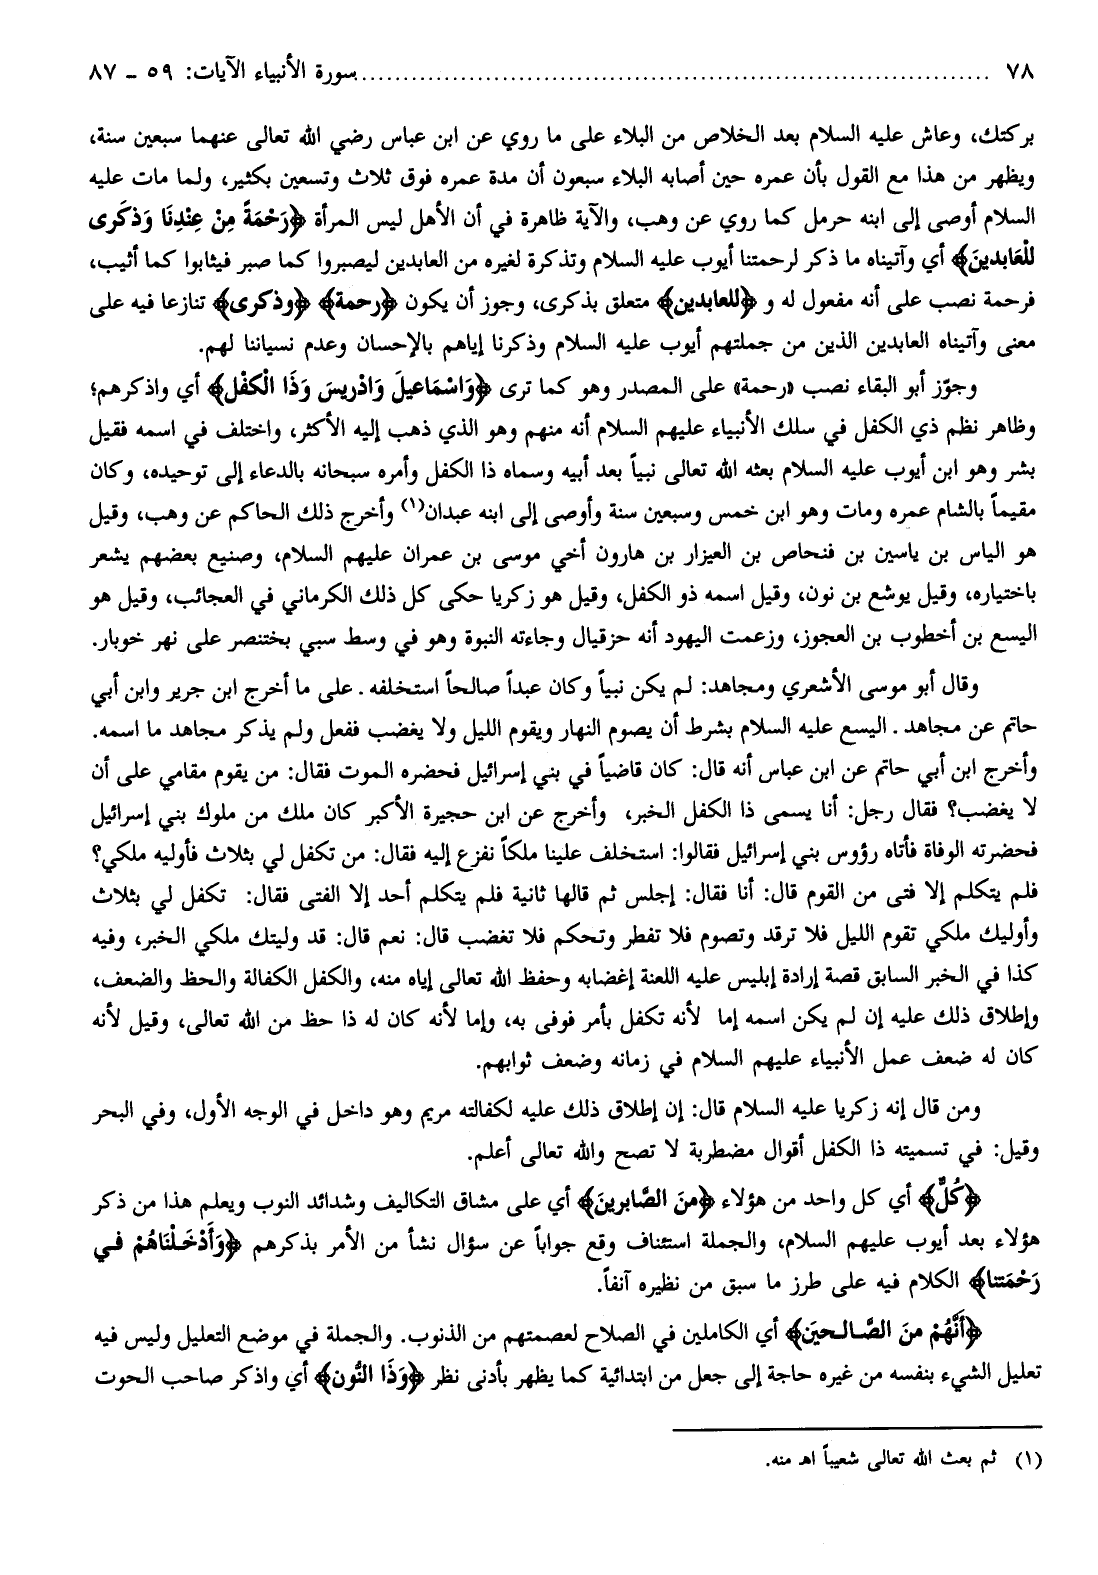 ٧٨ ........................................ سورة الأنبياء الآيات: ٥٩ - ٨٧
بركتك، وعاش عليه السلام بعد الخلاص من البلاء على ما روي عن ابن عباس رضي الله تعالى عنهما سبعين سنة،
ويظهر من هذا مع القول بأن عمره حين أصابه البلاء سبعون أن مدة عمره فوق ثلاث وتسعين بكثير، ولما مات عليه
السلام أوصى إلى ابنه حرمل كما روي عن وهب، والآية ظاهرة في أن الأهل ليس المرأة ﴿رَحْمَةً مِنْ عِنْدِنَا وَذكَرى
للْعَابدينَ﴾ أي وآتيناه ما ذكر لرحمتنا أيوب عليه السلام وتذكرة لغيره من العابدين ليصبروا كما صبر فيثابوا كما أثيب،
فرحمة نصب على أنه مفعول له و ﴿للعابدين﴾ متعلق بذكرى، وجوز أن يكون ﴿رحمة﴾ ﴿وذكرى﴾ تنازعا فيه على
معنى وآتيناه العابدين الذين من جملتهم أيوب عليه السلام وذكرنا إياهم بالإحسان وعدم نسياننا لهم.
وجوّز أبو البقاء نصب «رحمة» على المصدر وهو كما ترى ﴿وَاسْمَاعيلَ وَادْريسَ وَذَا الْكفْل﴾ أي واذكرهم؛
وظاهر نظم ذي الكفل في سلك الأنبياء عليهم السلام أنه منهم وهو الذي ذهب إليه الأكثر، واختلف في اسمه فقيل
بشر وهو ابن أيوب عليه السلام بعثه الله تعالى نبياً بعد أبيه وسماه ذا الكفل وأمره سبحانه بالدعاء إلى توحيده، وكان
مقيماً بالشام عمره ومات وهو ابن خمس وسبعين سنة وأوصى إلى ابنه عبدان(١) وأخرج ذلك الحاكم عن وهب، وقيل
هو الياس بن ياسين بن فنحاص بن العيزار بن هارون أخي موسى بن عمران عليهم السلام، وصنيع بعضهم يشعر
باختياره، وقيل يوشع بن نون، وقيل اسمه ذو الكفل، وقيل هو زكريا حكى كل ذلك الكرماني في العجائب، وقيل هو
اليسع بن أخطوب بن العجوز، وزعمت اليهود أنه حزقيال وجاءته النبوة وهو في وسط سبي بختنصر على نهر خوبار.
وقال أبو موسى الأشعري ومجاهد: لم يكن نبياً وكان عبداً صالحاً استخلفه . على ما أخرج ابن جرير وابن أبي
حاتم عن مجاهد . اليسع عليه السلام بشرط أن يصوم النهار ويقوم الليل ولا يغضب ففعل ولم يذكر مجاهد ما اسمه.
وأخرج ابن أبي حاتم عن ابن عباس أنه قال: كان قاضياً في بني إسرائيل فحضره الموت فقال: من يقوم مقامي على أن
لا يغضب؟ فقال رجل: أنا يسمى ذا الكفل الخبر، وأخرج عن ابن حجيرة الأكبر كان ملك من ملوك بني إسرائيل
فحضرته الوفاة فأتاه رؤوس بني إسرائيل فقالوا: استخلف علينا ملكاً نفزع إليه فقال: من تكفل لي بثلاث فأوليه ملكي؟
فلم يتكلم إلا فتى من القوم قال: أنا فقال: إجلس ثم قالها ثانية فلم يتكلم أحد إلا الفتى فقال: تكفل لي بثلاث
وأوليك ملكي تقوم الليل فلا ترقد وتصوم فلا تفطر وتحكم فلا تغضب قال: نعم قال: قد وليتك ملكي الخبر، وفيه
كذا في الخبر السابق قصة إرادة إبليس عليه اللعنة إغضابه وحفظ الله تعالى إياه منه، والكفل الكفالة والحظ والضعف،
وإطلاق ذلك عليه إن لم يكن اسمه إما لأنه تكفل بأمر فوفى به، وإما لأنه كان له ذا حظ من الله تعالى، وقيل لأنه
كان له ضعف عمل الأنبياء عليهم السلام في زمانه وضعف ثوابهم.
ومن قال إنه زكريا عليه السلام قال: إن إطلاق ذلك عليه لكفالته مريم وهو داخل في الوجه الأول، وفي البحر
وقيل: في تسميته ذا الكفل أقوال مضطربة لا تصح والله تعالى أعلم.
﴿كُلٌّ﴾ أي كل واحد من هؤلاء ﴿منَ الصَّابرينَ﴾ أي على مشاق التكاليف وشدائد النوب ويعلم هذا من ذكر
هؤلاء بعد أيوب عليهم السلام، والجملة استئناف وقع جواباً عن سؤال نشأ من الأمر بذكرهم ﴿وَأَدْخَلْنَاهُمْ في
رَحْمَتنا﴾ الكلام فيه على طرز ما سبق من نظيره آنفاً.
﴿أَنَّهُمْ منَ الصَّالحينَ﴾ أي الكاملين في الصلاح لعصمتهم من الذنوب. والجملة في موضع التعليل وليس فيه
تعليل الشيء بنفسه من غيره حاجة إلى جعل من ابتدائية كما يظهر بأدنى نظر ﴿وَذَا النُّون﴾ أي واذكر صاحب الحوت
(١) ثم بعث الله تعالى شعيباً اهـ منه.